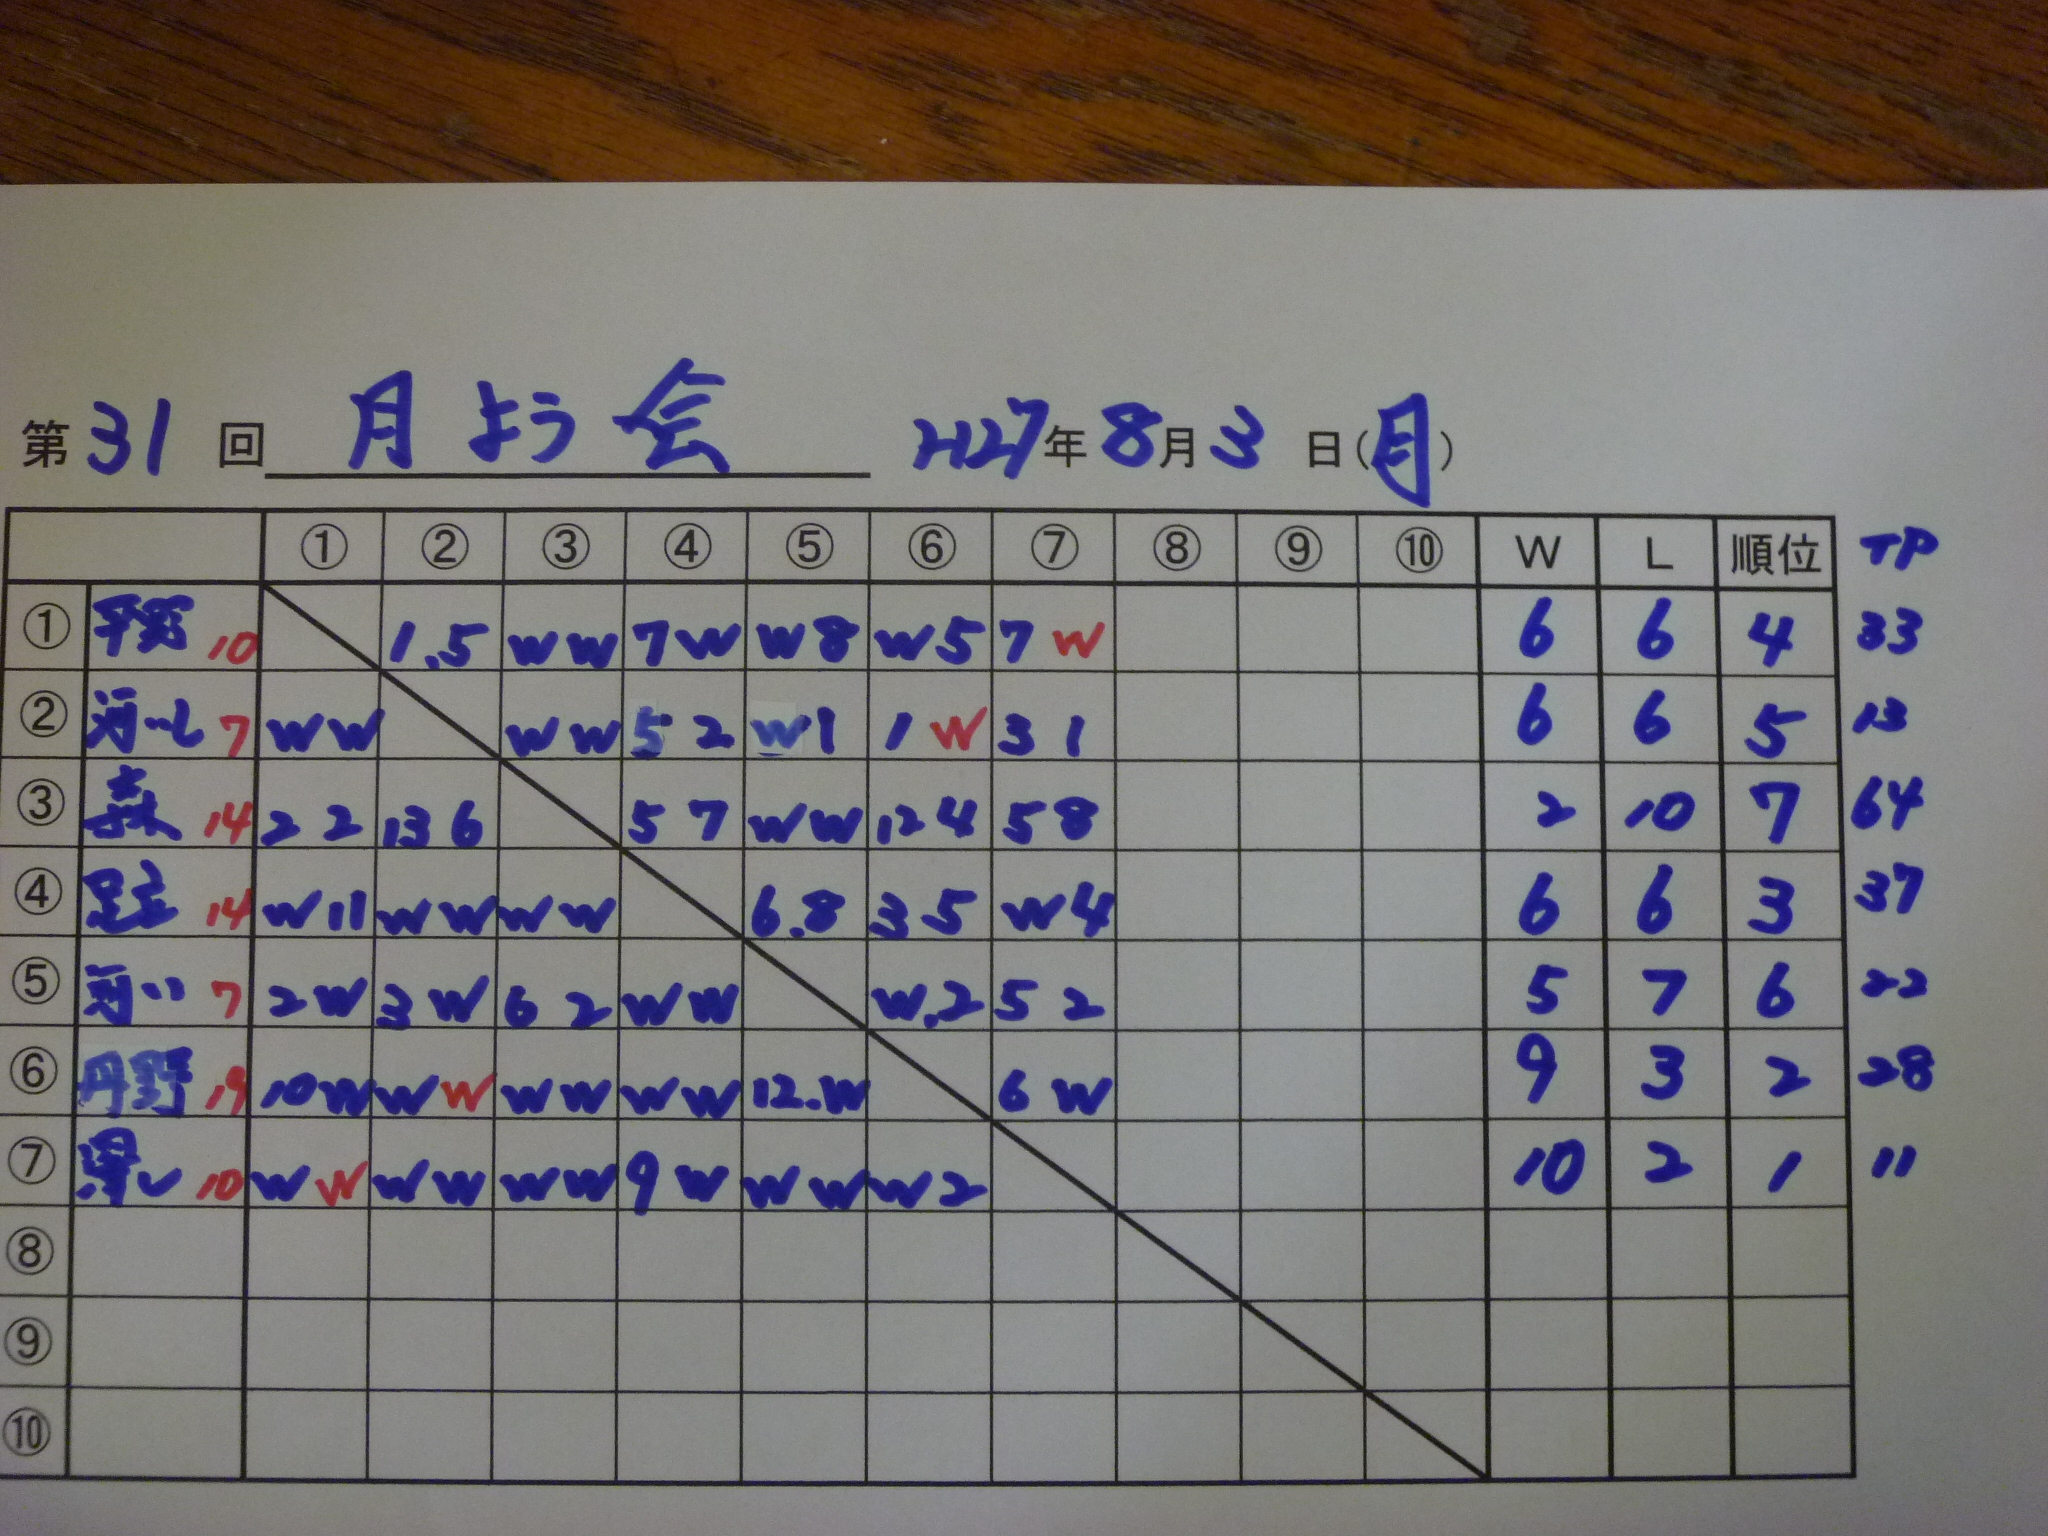 第 31 回 月よう会 H27年 8月 3 日(月)
① ② ③ ④ ⑤ ⑥ ⑦ ⑧ ⑨ ⑩ W L 順位 TP
① 平野 10 1.5 W W 7 W W 8 W 5 7 W 6 6 4 33
② 7 W W W W 5 2 W 1 1 W 3 1 6 6 5 13
③ 森 14 2 2 13 6 5 7 W W 12 4 5 8 2 10 7 64
④ 足立 14 W 11 W W W W 6.8 3 5 W 4 6 6 3 37
⑤ 7 2 W 3 W 6 2 W W W.2 5 2 5 7 6 22
⑥ 丹野 19 10 W W W W W W W 12.W 6 W 9 3 2 28
⑦ 10 W W W W W W 9 W W W W 2 10 2 1 11
⑧
⑨
⑩